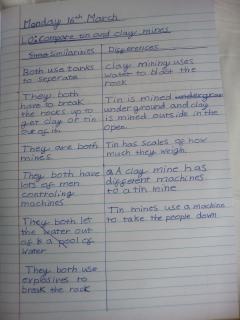 Monday 16th March
LO: Compare tin and clay mines
Similarities
Differences
Both use tanks
to seperate
They both
have to break
the rocks up to
get clay or tin
out of it.
They are both
mines.
They both have
lots of men
controling
machines
They both let
the water out
of a pool of
water
They both use
explosives to
break the rock
Clay mining uses
water to blast the
rock
Tin is mined
underground and clay
is mined outside in the
open.
Tin has scales of how
much they weigh.
A clay mine has
different machines
to a tin mine
Tin mines use a machine
to take the people down